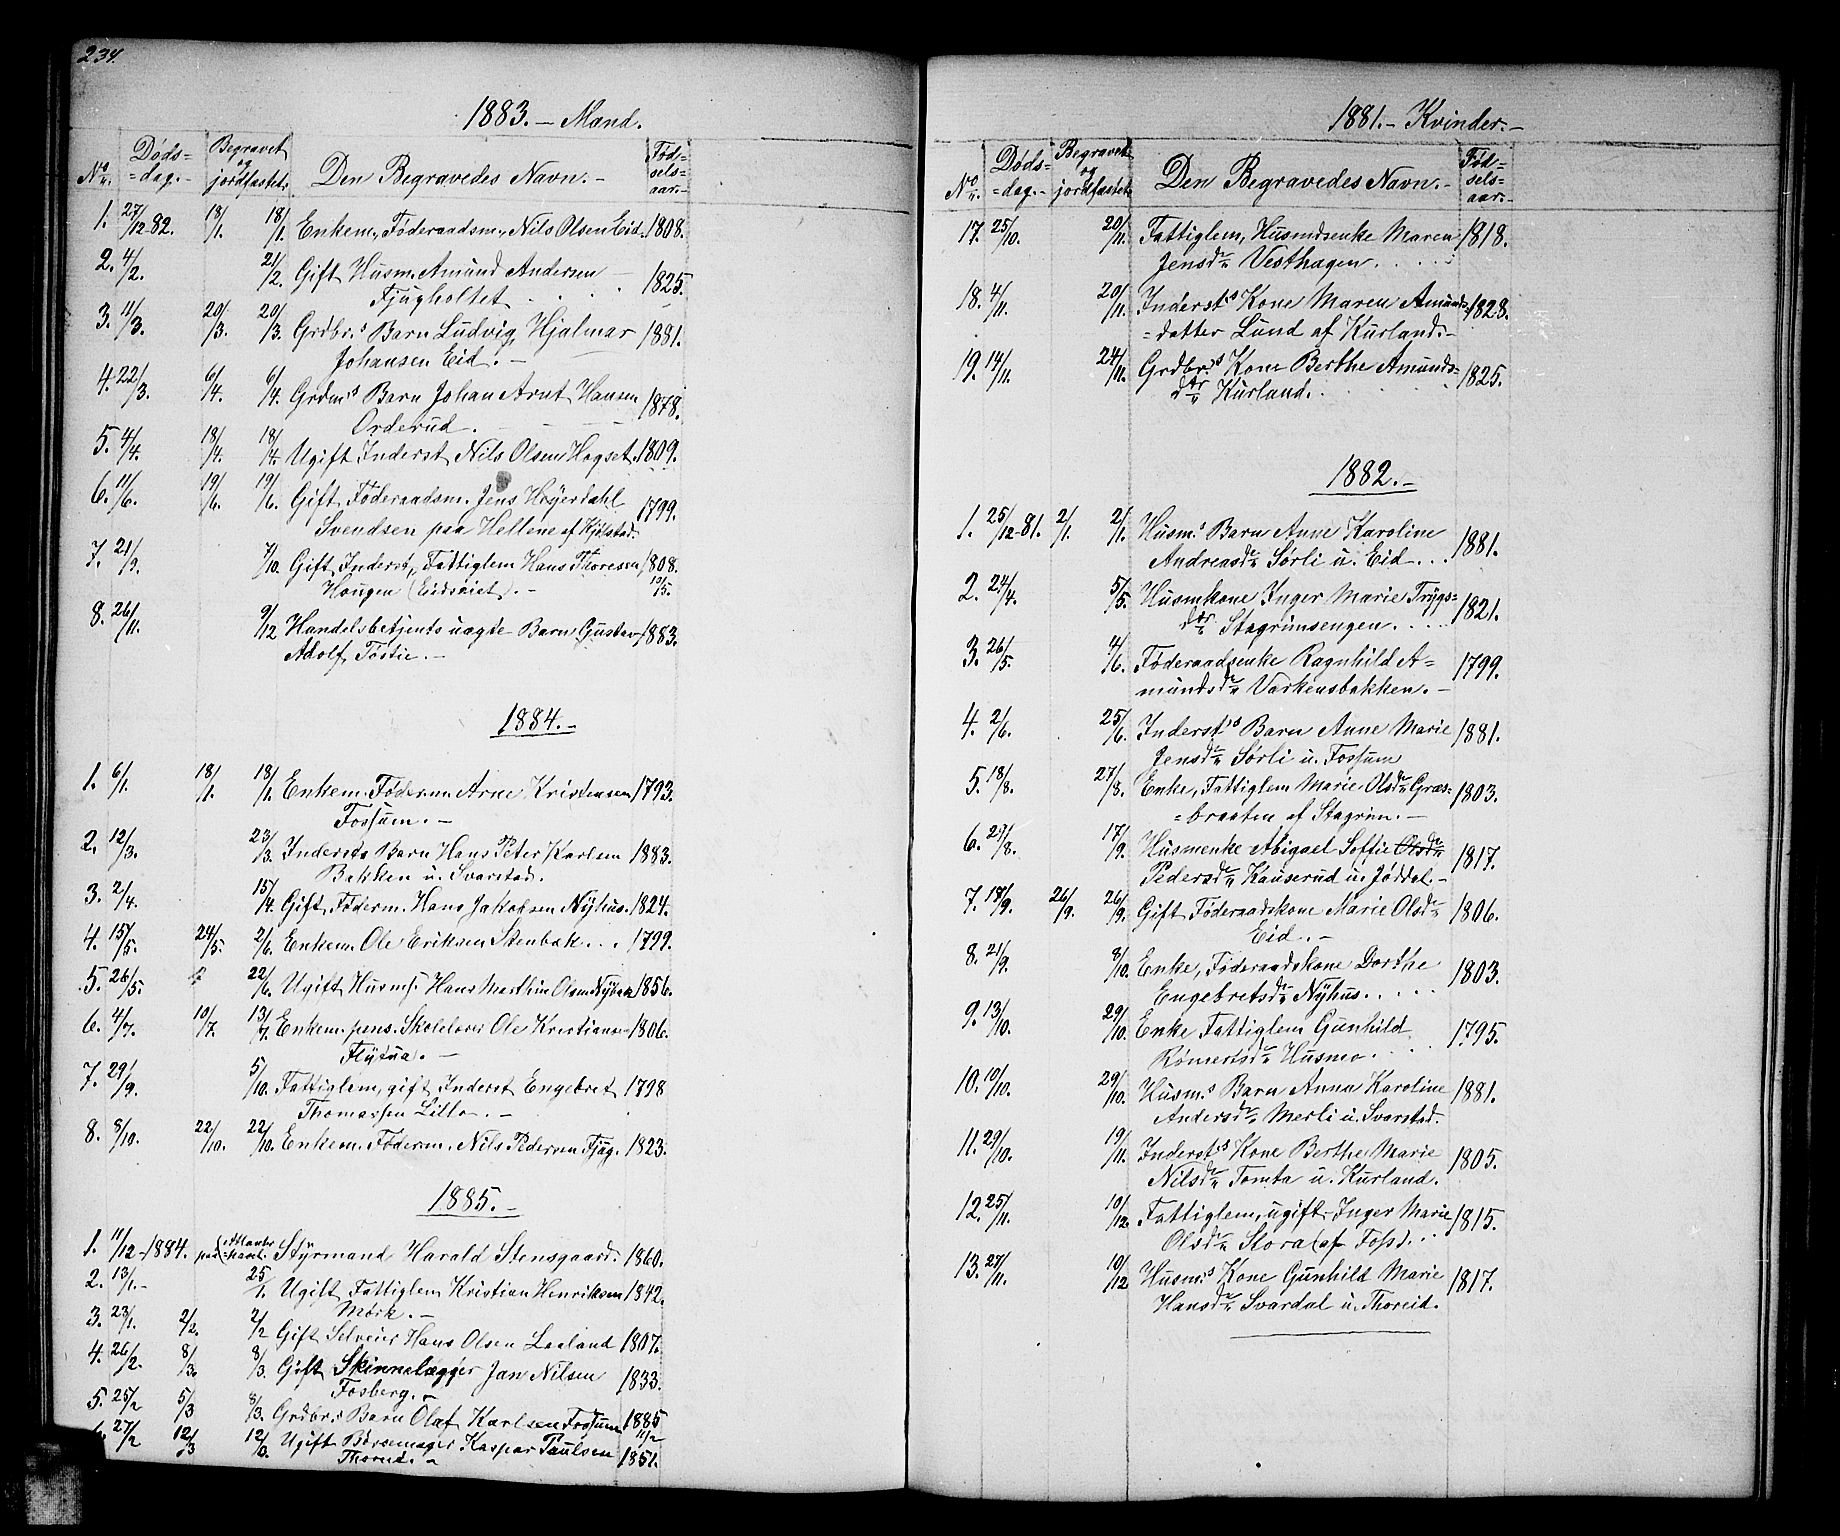 234.
1883. – Mænd.
No. Døds=dag. – Begravet og jordfæstet. Den Begravedes Navn. – Fødselsaar. –
1. 27/12-82. 18/1. 18/1. Enkem., Føderaadsm., Nils Olsen Eid. 1808.
2. 4/2. 21/2. Gift Husm. Amund Andersen
Fjugholtet . . . . 1825.
3. 11/3. 20/3. 20/3. Grdbr.s Barn Ludvig Hjalmar 1881.
Johansen Eid. –
4. 22/3. 6/4. 6/4. Grdm.s Barn Johan Arnt Hansen 1878.
Orderud.
5. 4/4. 18/4. 18/4. Ugift Inderst Nils Olsen Hogset. 1809.
6. 11/6. 19/6. 19/6. Gift Føderaadsm. Jens Høyerdahl
Svendsen paa Hellene af Kjølstad. 1799.
7. 21/9. 7/10. Gift Inders., Fattiglem Hans Thoresen, 1808.
Hougen (Eidseiet). –
8. 26/11. 9/12 Handelsbetjents uægte Barn Gustav 1883. 10/5.
Adolf Tostie. –
1884. –
1. 6/1. 18/1. 18/1. Enkem. Føderm. Arne Kristensen 1793.
Fossum. –
2. 12/3. 23/3. Inderstes Barn Hans Peter Karlsen 1883.
Bakken u. Svarstad.
3. 2/4. 15/4. Gift Føderm. Hans Jakobsen Nyhus. 1824.
4. 15/5. 24/5. 2/6. Enkem. Ole Eriksen Stenbæk . . . 1799.
5. 26/5. 22/6. Ugift Husms. Hans Marthin Olsen 1856.
6. 4/7. 10/7. 13/7. Enkem. pens. Skolelærer Ole Kristiansen 1806.
Flytua. –
7. 29/9. 5/10. Fattiglem, gift Inderst Engebret 1798
Thomassen Lilla. –
8. 8/10. 22/10. 22/10. Enkem. Føderm. Nils Pedersen Fjug. 1823.
1885. –
1. 11/12-1884. paa Styrmand Harald Stensgaard. 1860.
2. 13/1. – 25/1. Ugift Fattiglem Kristian Henriksen 1842.
Mørk. –
3. 23/1. 2/2. 2/2 Gift Selveier Hans Olsen 1807.
4. 26/2. 8/3. 8/3. Gift Skinnelægger Jan Nilsen 1833.
Fosberg. –
5. 25/2 5/3 8/3. Grdbr.s Barn Olaf Karlsen Fossum 1885 11/2
6. 27/2 12/3 12/3. Ugift Børsemager Kaspar Paulsen 1851.
Thorud. –
1881. – Kvinder. –
No. Døds=dag. – Begravet og jordfæstet Den Begravedes Navn. – Fødselsaar. –
17. 25/10. 20/11. Fattiglem, Husmdsenke Maren 1818.
Jensdr. Vesthagen . . . . .
18. 4/11. 20/11. Inderst.s Kone Maren Amunds= 1828.
=datter Lund af Kurland. –
19. 14/11. 24/11. Grdbr.s Kone Berthe Amunds= 1825.
dtr. Kurland. . . . .
1882. –
1. 25/12-81. 2/1. 2/1. Husm.s Barn Anne Karoline
Andreasdr. Sørli u. Eid . . . 1881.
2. 24/4. 5/5. Husmkone Inger Marie Trygs=
dtr. Stagrimsengen . . . . 1821.
3. 26/5. 4/6. Føderaadsenke Ragnhild A=
mundsdr. Varkensbakken. – 1799.
4. 2/6. 25/6. Inderst.s Barn Anne Marie 1881.
Jensdr. Sørli u. Fossum
5. 18/8. 27/8. Enke, Fattiglem Marie Olsdr. Græs= 1803.
=braaten af Stagrim. –
6. 29/8. 17/9. Husmenke Abigael Soffie Olsdr.
Pedersdr. Kauserud u. Jøddal. – 1817.
7. 18/9. 26/9. 26/9. Gift Føderaadskone Marie Olsdr. 1806.
Eid. –
8. 21/9. 8/10. Enke, Føderaadskone Dorthe 1803.
Engebretsdr. Nyhus . . . . .
9. 13/10. 29/10. Enke Fattiglem Gunhild
Rømertsdr. Husmo . . . . 1795.
10. 10/10. 29/10. Husm.s Barn Anna Karoline 1881.
Andersdr. Mørli u. Svarstad.
11. 29/10. 19/11. Inderst.s Kone Berthe Marie 1805.
Nilsdr. Tomta u. Kurland.
12. 25/11. 10/12. Fattiglem, ugift Inger Marie 1815.
Olsdr. Stora (af Foss) . . .
13. 27/11. 10/12 Husm.s Kone Gunhild Marie 1817.
Hansdr. Svardal u. Thoreid.